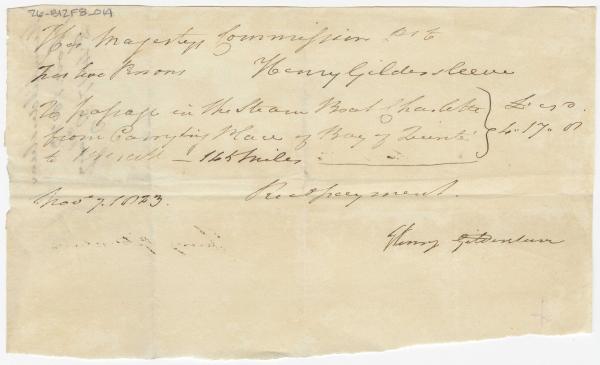 76-B12F8-019
His Majestys Commission Dr to
Henry Gildersleeve
To passage in the Steam Boat Charlotte
from Carrying Place of Bay of Quinte
to Prescott – 145 miles
£ s D.
4.17.0
Novr 7. 1823. Recd payment.
Henry Gildersleeve